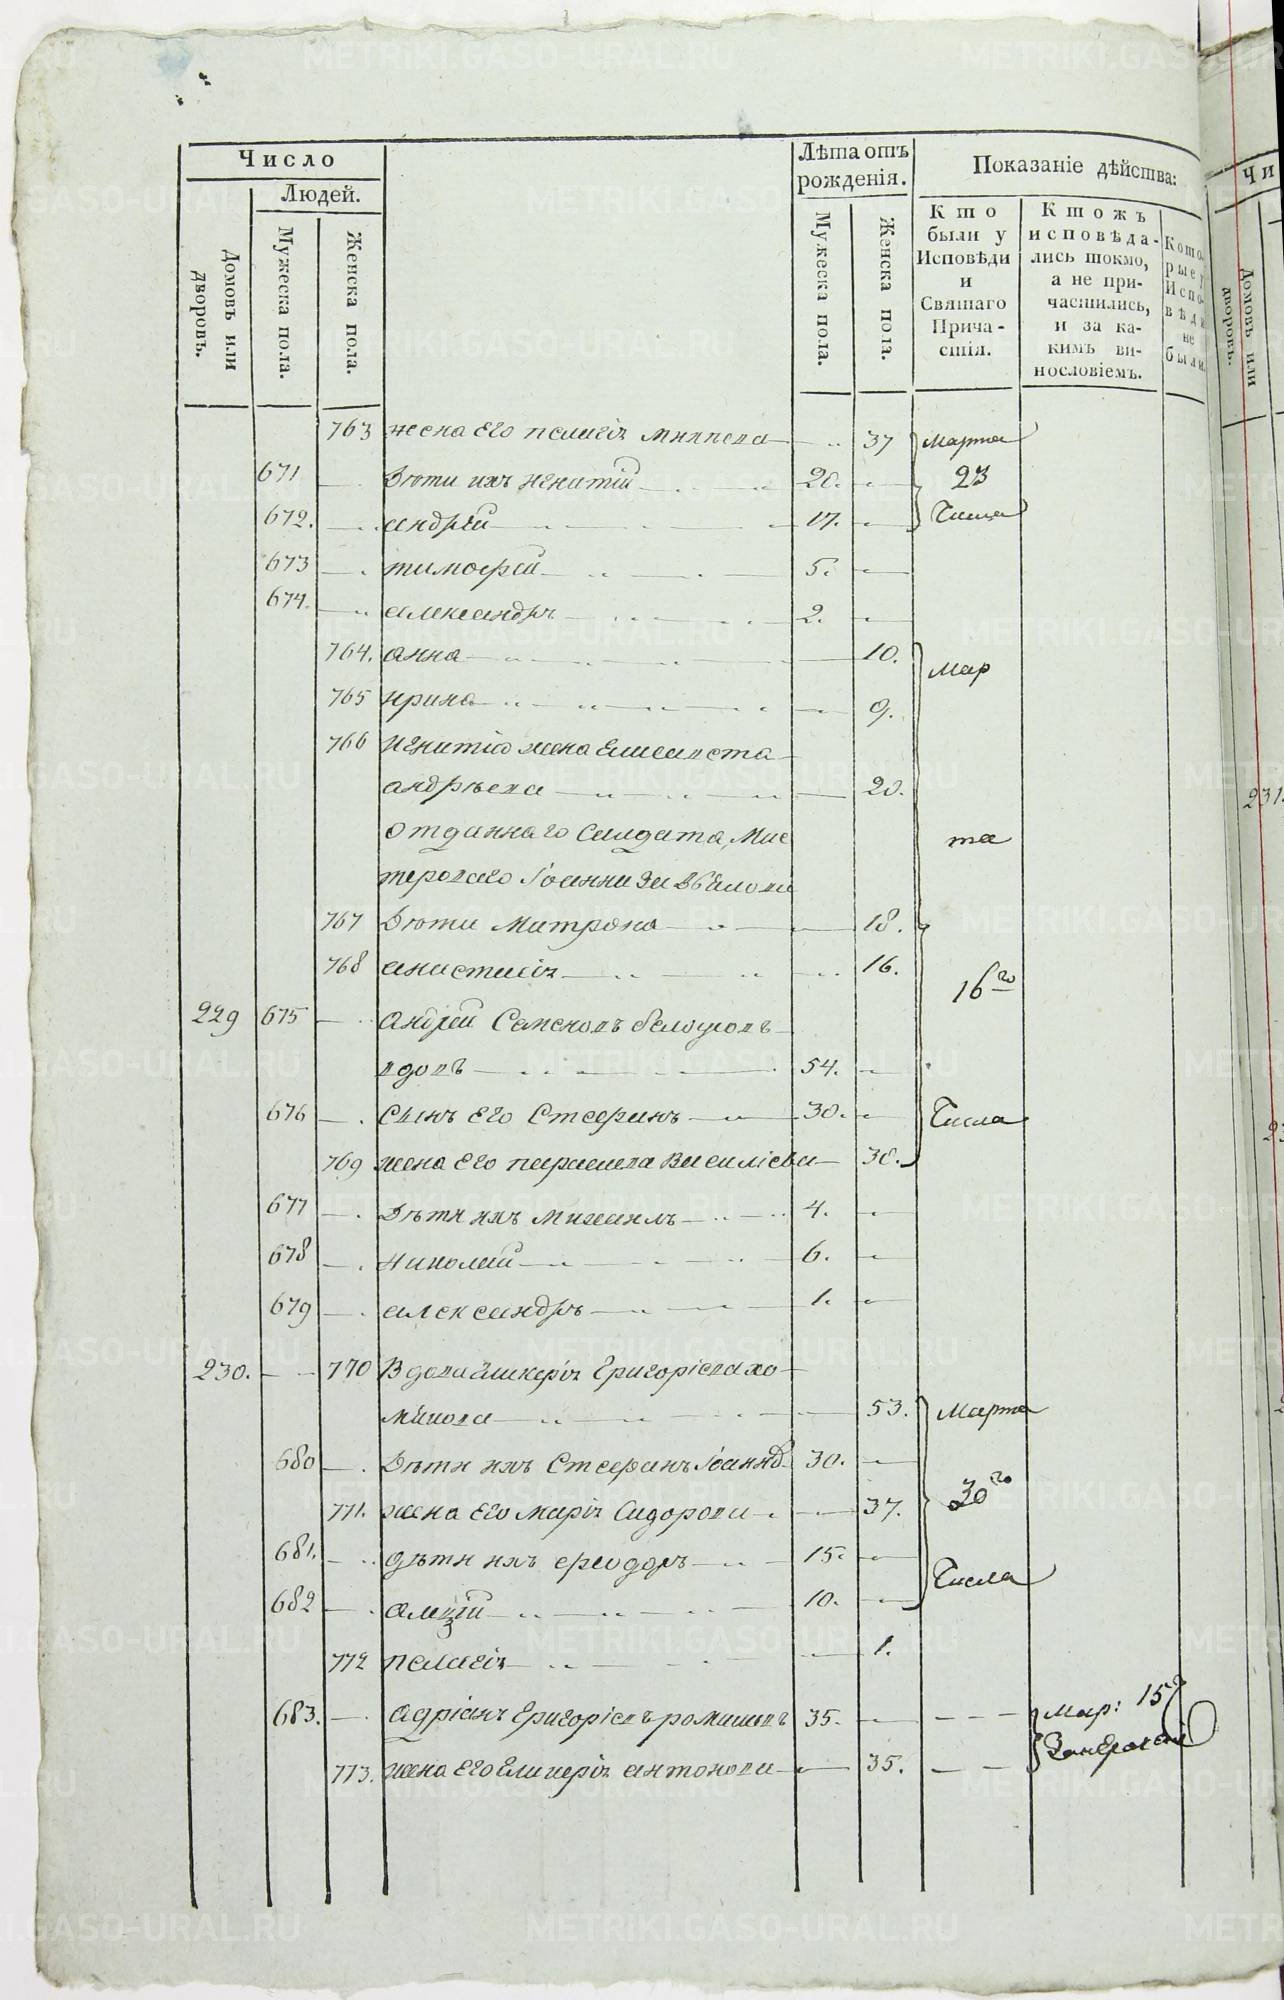 Число
Людей.
Домовъ или дворовъ.
Мужеска пола.
Женска пола.
Лѣта отъ рожденія.
Мужеска пола.
Женска пола.
Показаніе дѣйства:
Кто были у Исповѣди и Святаго Причастія.
Ктожъ исповѣдались токмо, а не причастились, и за какимъ винословіемъ.
Которые у Исповѣди не были.
763 жена Его пелагіѧ 37 Марта
671 Дѣти ихъ Игнатій 20. 23
672. андрѣй 17. Числа
673 тимоѳей 5.
674. александръ 2.
764. анна 10. Мар
765 ирина 9.
766 Игнатія жена Елисавета
андрѣева 20.
отданнаго Салдата, Мас та
тероваго Іоанна
767 Дѣти Матрона 18.
768 анастасіѧ 16. 16го
229 675 Андрей Семеновъ
54.
676 Сынъ Его Стефанъ 30. Числа
769 жена Его парасковіа Василіева 30.
677 Дѣти ихъ Михаилъ 4.
678 Николай 6.
679 александръ 1.
230. 770 Вдова Гликеріѧ Григоріева хо
мякова 53. Марта
680 Дѣти ихъ Стефанъ Іоанновъ 30. 30го
771. жена Его Маріѧ Сидорова 37.
681. дѣти ихъ ѳеодоръ 15. Числа
682 10.
772 пелагіѧ 1.
683. Адріанъ Григоріевъ 35. Мар: 15
773. жена Его Гликеріѧ антонова 35.
Чи
Домовъ или дворовъ.
231.